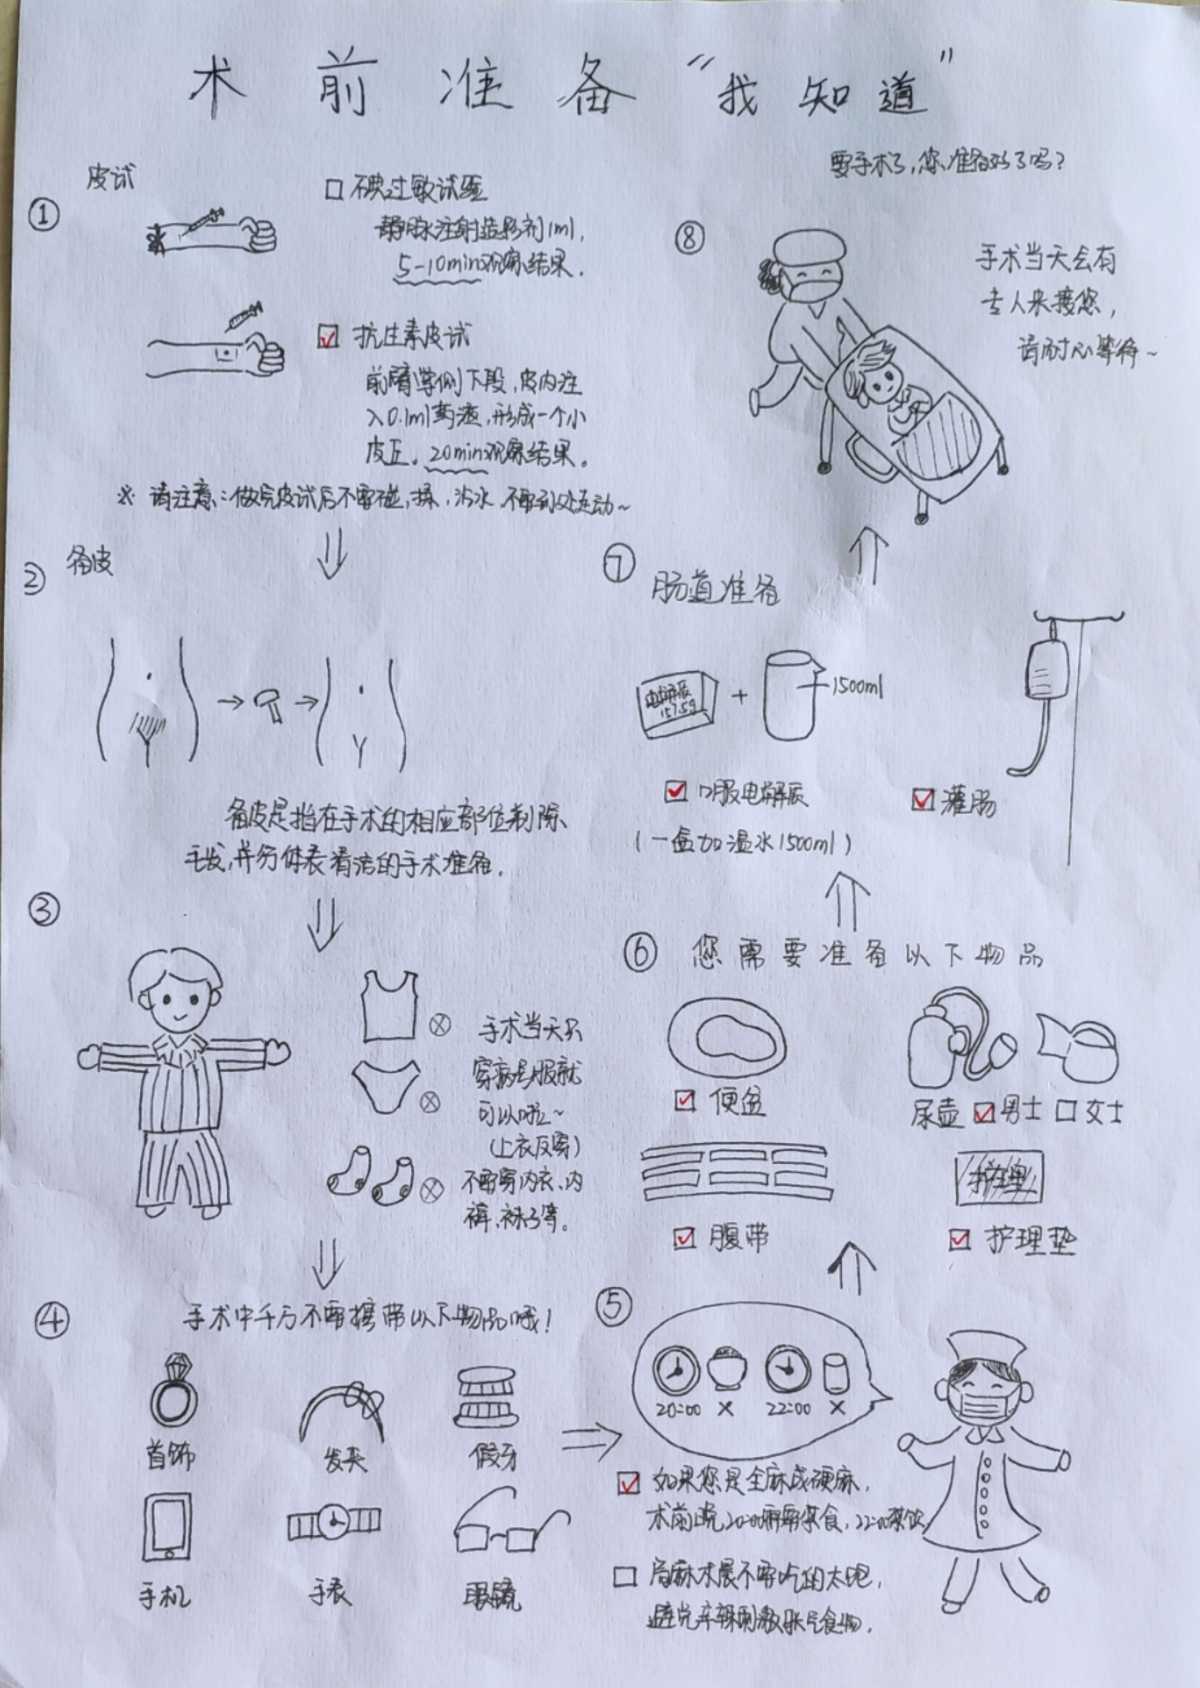 术前准备“我知道”
要手术了,您准备好了吗?
①
皮试
□ 碘过敏试验
静脉注射造影剂1ml,
5-10min观察结果.
☑ 抗生素皮试
前臂掌侧下段,皮内注
入0.1ml药液,形成一个小
皮丘。20min观察结果。
※ 请注意:做完皮试后不要碰,揉,沾水,不要到处走动~
②
备皮
备皮是指在手术的相应部位剃除
毛发,并行体表清洁的手术准备.
③
手术当天只
穿病号服就
可以啦~
(上衣反穿)
不要穿内衣、内
裤、袜子等。
④
手术中千万不要携带以下物品哦!
首饰
发夹
假牙
手机
手表
眼镜
⑤
20:00 × 22:00 ×
☑ 如果您是全麻或硬麻,
术前晚20:00需要禁食,22:00禁饮
□ 局麻术晨不要吃的太饱,
避免辛辣刺激胀气食物.
⑥
您需要准备以下物品
☑ 便盆
尿壶 ☑男士 □女士
☑ 腹带
护理垫
☑ 护理垫
⑦
肠道准备
电解质
137.5g
+
1500ml
☑ 口服电解质
(一盒加温水1500ml)
☑ 灌肠
⑧
手术当天会有
专人来接您,
请耐心等待~